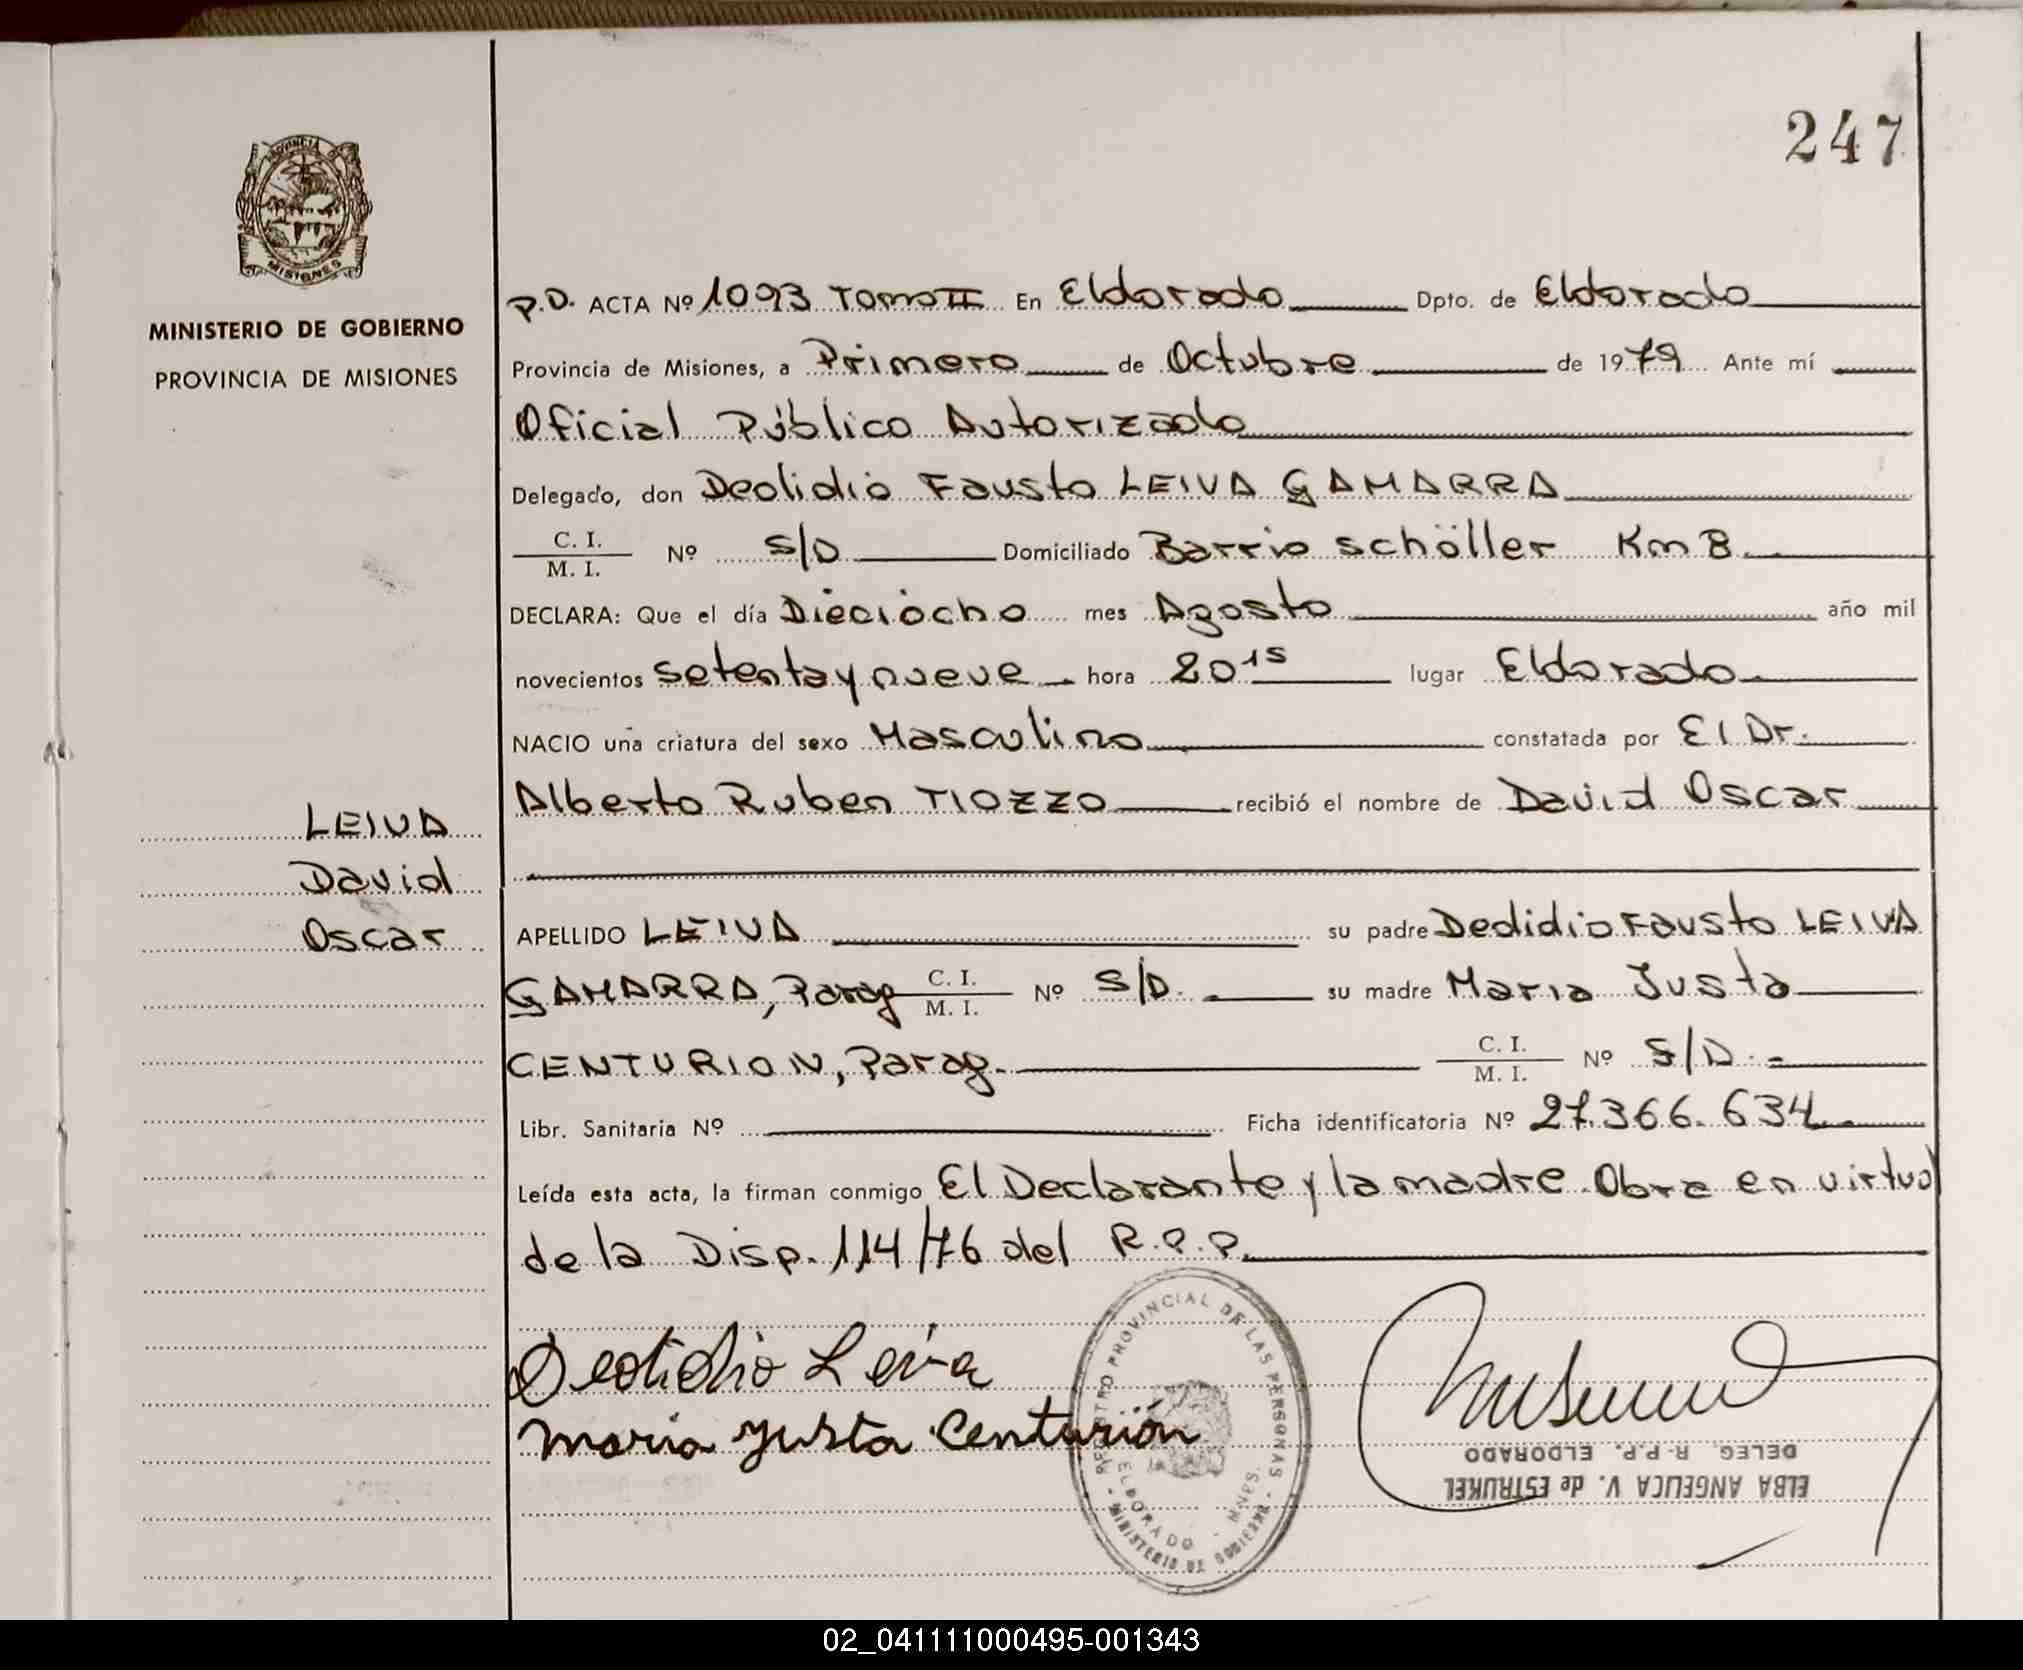 247
PROVINCIA DE
MISIONES
MINISTERIO DE GOBIERNO
PROVINCIA DE MISIONES
LEIVA
David
Oscar
P.D. ACTA Nº 1093 Tomo II En Eldorado Dpto. de Eldorado
Provincia de Misiones, a Primero de Octubre de 1979 Ante mí
Oficial Público Autorizado
Delegado, don Deolidio Fausto LEIVA GAMARRA
C. I.
M. I. Nº S/D Domiciliado Barrio Schöller Km 8
DECLARA: Que el día Dieciocho mes Agosto año mil
novecientos setenta y nueve hora 20 15 lugar Eldorado
NACIO una criatura del sexo Masculino constatada por El Dr.
Alberto Ruben TIOZZO recibió el nombre de David Oscar
APELLIDO LEIVA su padre Deolidio Fausto LEIVA
GAMARRA, Parag C. I. M. I. Nº S/D. su madre Maria Justa
CENTURION, Parag. C. I. M. I. Nº S/D.
Libr. Sanitaria Nº Ficha identificatoria Nº 27.366.634
Leída esta acta, la firman conmigo El Declarante y la madre. Obra en virtud
de la Disp. 114/76 del R.P.P.
Deolidio Leiva
Maria Justa Centurión
REGISTRO PROVINCIAL DE LAS PERSONAS
ELDORADO - MNES.
- MINISTERIO DE GOBIERNO -
ELBA ANGELICA V. de ESTRUKEL
DELEG. R.P.P. ELDORADO
02_041111000495-001343